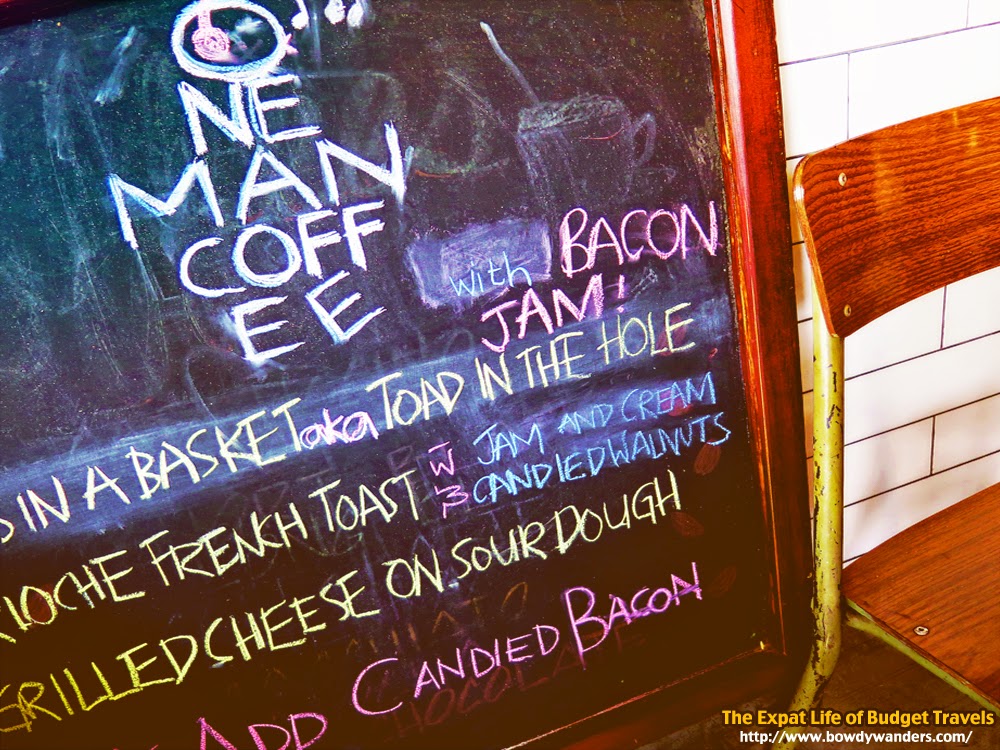 ONE
MAN
COFF
EE
with BACON
JAM!
IN A BASKET aka TOAD IN THE HOLE
RIOCHE FRENCH TOAST W
JAM AND CREAM
CANDIED WALNUTS
GRILLED CHEESE ON SOUR DOUGH
ADD CANDIED BACON
The Expat Life of Budget Travels
http://www.bowdywanders.com/